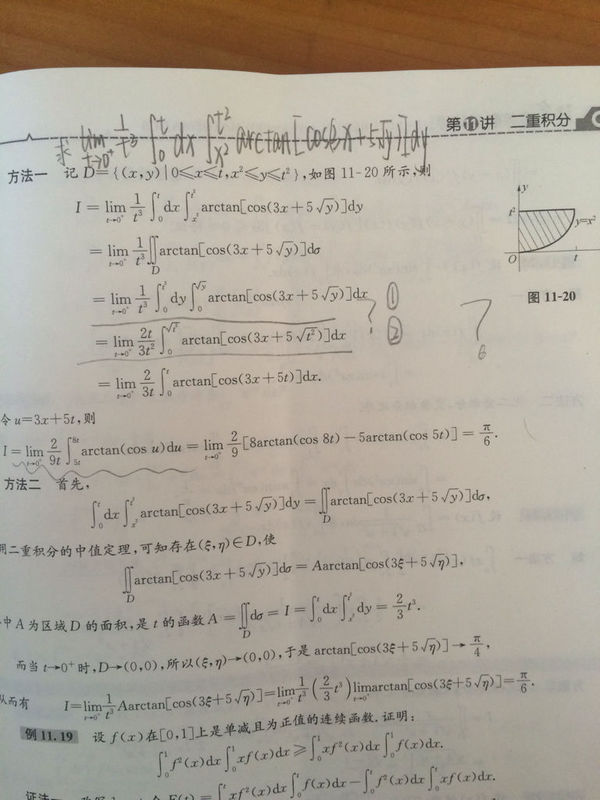 第11讲 二重积分
求 lim_{t→0⁺} 1/t³ ∫₀ᵗ dx ∫_{x²}^{t²} arctan[cos(3x+5√y)]dy
方法一 记 D={(x,y)|0≤x≤t,x²≤y≤t²},如图 11-20 所示,则
I = lim_{t→0⁺} 1/t³ ∫₀ᵗ dx ∫_{x²}^{t²} arctan[cos(3x+5√y)]dy
= lim_{t→0⁺} 1/t³ ∬_D arctan[cos(3x+5√y)]dσ
= lim_{t→0⁺} 1/t³ ∫₀^{t²} dy ∫₀^{√y} arctan[cos(3x+5√y)]dx ? ①
= lim_{t→0⁺} 2t/3t² ∫₀^{√t²} arctan[cos(3x+5√t²)]dx ②
= lim_{t→0⁺} 2/3t ∫₀ᵗ arctan[cos(3x+5t)]dx.
y
t²
y=x²
O
t
图 11-20
令 u=3x+5t,则
I = lim_{t→0⁺} 2/9t ∫_{5t}^{8t} arctan(cos u)du = lim_{t→0⁺} 2/9 [8arctan(cos 8t)-5arctan(cos 5t)] = π/6.
方法二 首先,
∫₀ᵗ dx ∫_{x²}^{t²} arctan[cos(3x+5√y)]dy = ∬_D arctan[cos(3x+5√y)]dσ,
用二重积分的中值定理,可知存在(ξ,η)∈D,使
∬_D arctan[cos(3x+5√y)]dσ = Aarctan[cos(3ξ+5√η)],
中 A 为区域 D 的面积,是 t 的函数 A = ∬_D dσ = I = ∫₀ᵗ dx ∫_{x²}^{t²} dy = 2/3 t³.
而当 t→0⁺ 时,D→(0,0),所以(ξ,η)→(0,0),于是 arctan[cos(3ξ+5√η)] → π/4,
从而有 I = lim_{t→0⁺} 1/t³ Aarctan[cos(3ξ+5√η)] = lim_{t→0⁺} 1/t³ (2/3 t³) lim_{t→0⁺} arctan[cos(3ξ+5√η)] = π/6.
例 11.19 设 f(x)在[0,1]上是单减且为正值的连续函数.证明:
∫₀¹ xf²(x)dx ∫₀¹ f(x)dx ≥ ∫₀¹ f²(x)dx ∫₀¹ xf(x)dx.